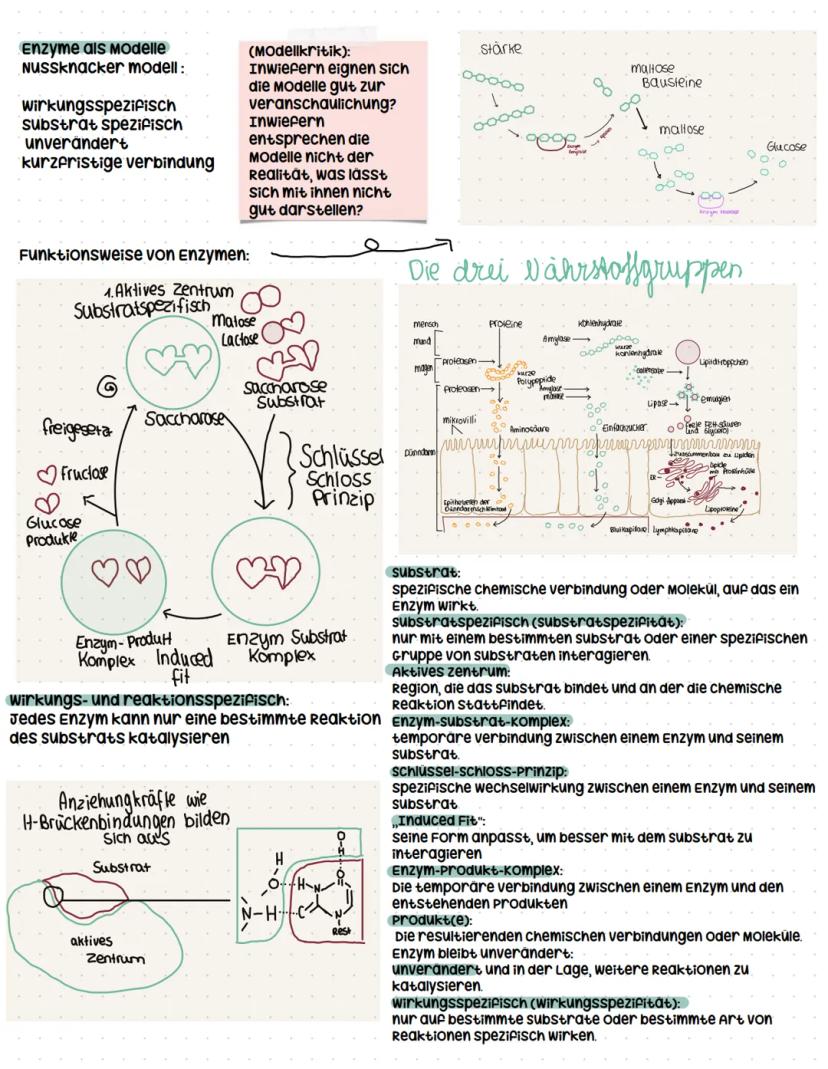 Enzyme als Modelle
Nussknacker modell:
wirkungsspezifisch
substrat spezifisch
unverändert
kurzfristige verbindung
(Modellkritik):
Inwiefern eignen sich
die Modelle gut zur
veranschaulichung?
Inwiefern
entsprechen die
Modelle nicht der
Realität, was lässt
sich mit ihnen nicht
gut darstellen?
stärke
maltose
Bausteine
maltose
Glucose
Funktionsweise von Enzymen:
1. Aktives Zentrum
Substratspezifisch
Matose
Lactose
Saccharose
Substrat
Saccharose
freigesetz
Fructose
Glucose
Produkte
Schlüssel
Schloss
Prinzip
Enzym-Produkt
Komplex
Induced
fit
Enzym Substrat
Komplex
Die drei Nährstoffgruppen
mensch
mund
magen
Dünndarm
Proteine
Kohlenhydrate
Amylase
kurze
kohlenhydrate
Lipidtröpfchen
proteasen
kurze
Polypeptide
proteasen
Amylase
maltase
Gallensäure
Emulgien
Lipase
freie Fettsäuren
und Glycerol
mikrovilli
Aminosäure
Einfachzucker
Zusammenbau zu Lipiden
Lipide
mit Proteinhülle
ER
Golgi Apparat
Lipoproteine
Epithelzellen der
Dünndarmschleimhaut
Blutkapillare
Lymphkapillare
Wirkungs- und reaktionsspezifisch:
Jedes Enzym kann nur eine bestimmte Reaktion
des Substrats katalysieren
Anziehungkräfte wie
H-Brückenbindungen bilden
sich aus
Substrat
aktives
Zentrum
O
H
H
O
H
N
O
N
H
C
N
Rest
Substrat:
spezifische chemische Verbindung oder Molekül, auf das ein
Enzym wirkt.
Substratspezifisch (Substratspezifität):
nur mit einem bestimmten Substrat oder einer spezifischen
Gruppe von Substraten interagieren.
Aktives Zentrum:
Region, die das Substrat bindet und an der die chemische
Reaktion stattfindet.
Enzym-Substrat-Komplex:
temporäre Verbindung zwischen einem Enzym und seinem
Substrat.
Schlüssel-Schloss-Prinzip:
spezifische Wechselwirkung zwischen einem Enzym und seinem
Substrat
„Induced Fit":
seine Form anpasst, um besser mit dem Substrat zu
interagieren
Enzym-Produkt-Komplex:
Die temporäre Verbindung zwischen einem Enzym und den
entstehenden Produkten
Produkt(e):
Die resultierenden chemischen Verbindungen oder Moleküle.
Enzym bleibt unverändert:
unverändert und in der Lage, weitere Reaktionen zu
katalysieren.
Wirkungsspezifisch (Wirkungsspezifität):
nur auf bestimmte Substrate oder bestimmte Art von
Reaktionen spezifisch wirken.